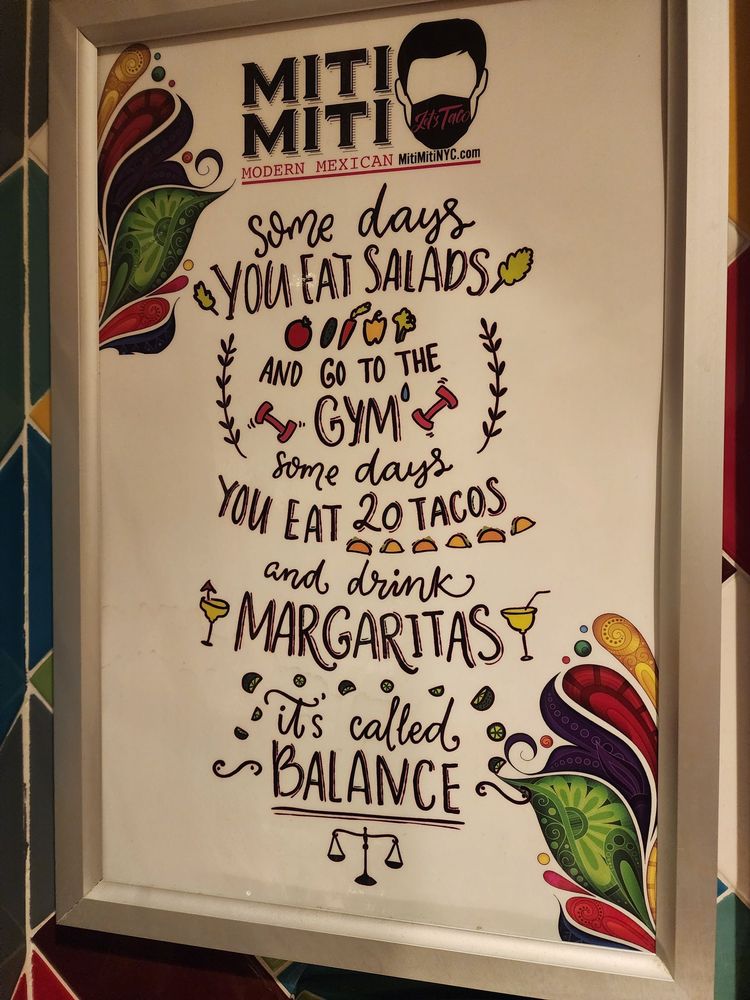 MITI
MITI
Let's Taco
MODERN MEXICAN MitiMitiNYC.com
some days
YOU EAT SALADS
AND GO TO THE
GYM
some days
YOU EAT 20 TACOS
and drink
MARGARITAS
it's called
BALANCE